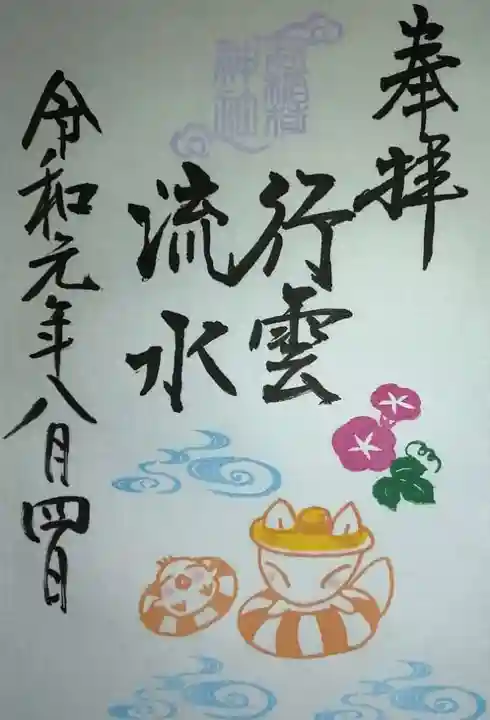 奉拝
行雲
流水
令和元年八月四日